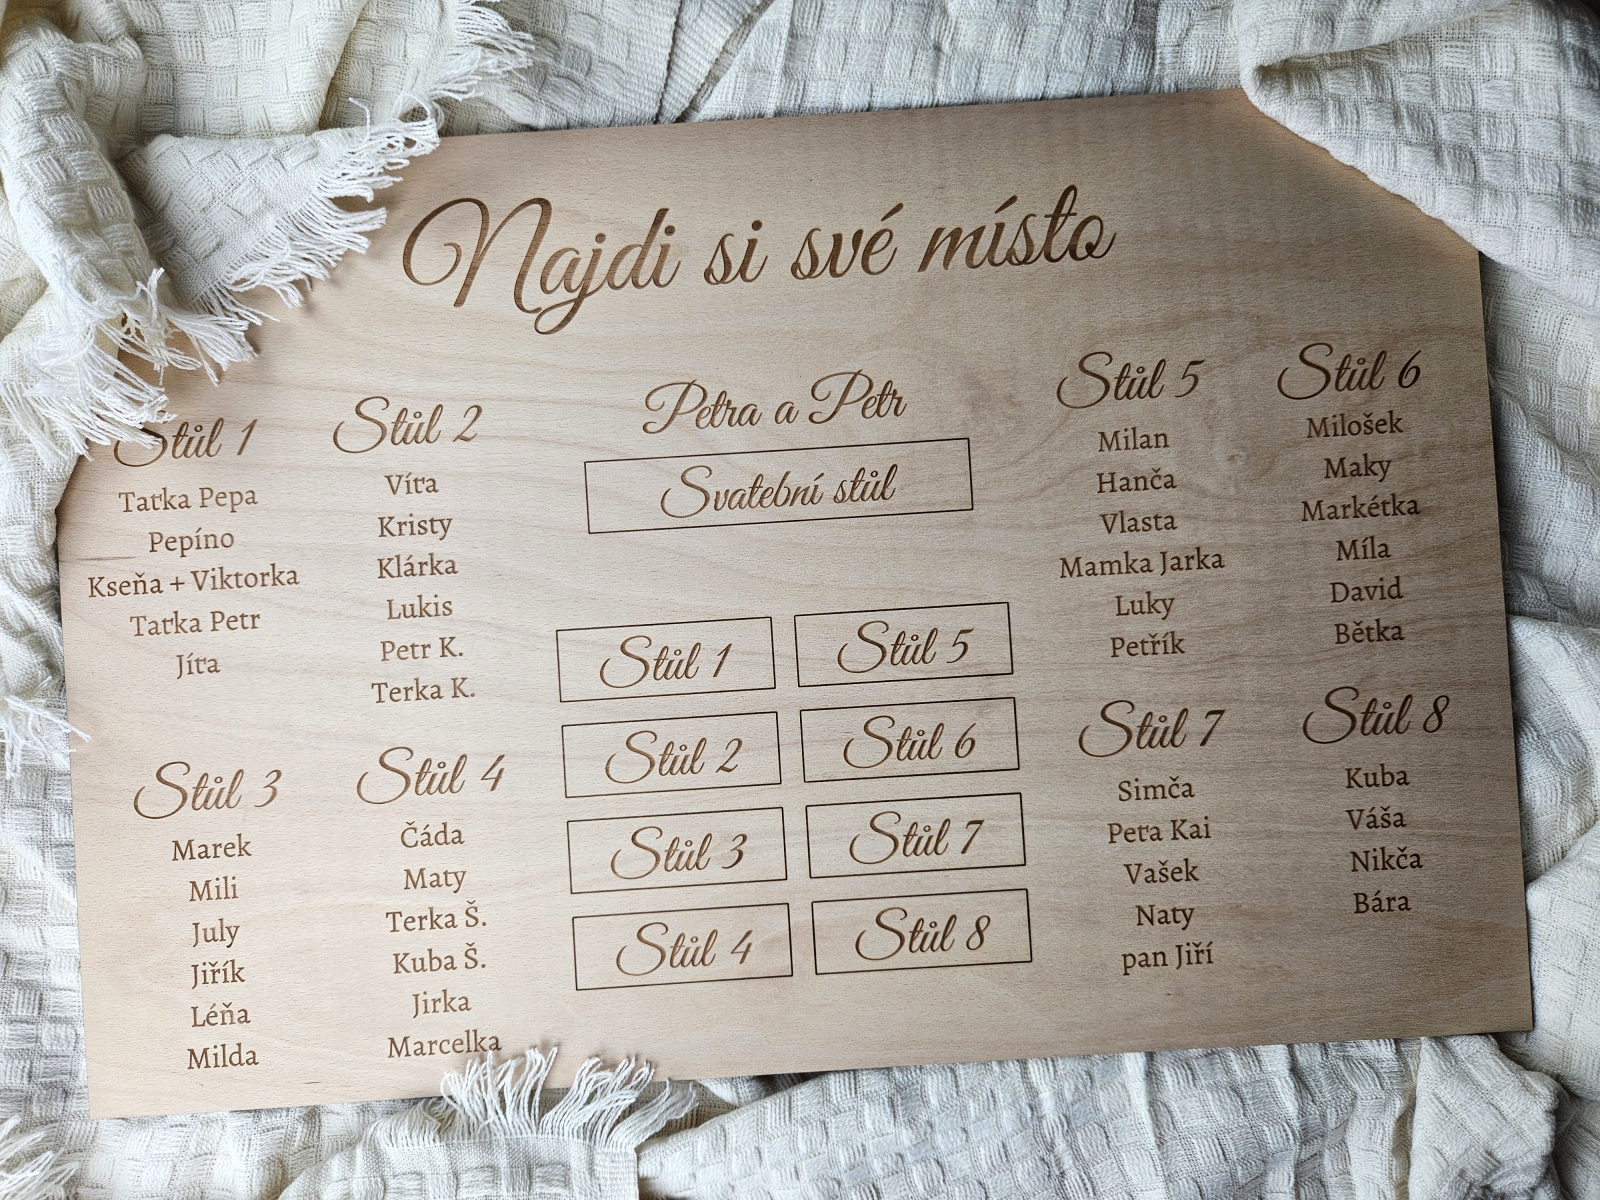 Najdi si své místo
Petra a Petr
Svatební stůl
Stůl 1
Taťka Pepa
Pepíno
Kseňa + Viktorka
Taťka Petr
Jíťa
Stůl 2
Víťa
Kristy
Klárka
Lukis
Petr K.
Terka K.
Stůl 3
Marek
Mili
July
Jiřík
Léňa
Milda
Stůl 4
Čáda
Maty
Terka Š.
Kuba Š.
Jirka
Marcelka
Stůl 1
Stůl 5
Stůl 2
Stůl 6
Stůl 3
Stůl 7
Stůl 4
Stůl 8
Stůl 5
Milan
Hanča
Vlasta
Mamka Jarka
Luky
Petřík
Stůl 6
Milošek
Maky
Markétka
Míla
David
Bětka
Stůl 7
Simča
Peťa Kai
Vašek
Naty
pan Jiří
Stůl 8
Kuba
Váša
Nikča
Bára